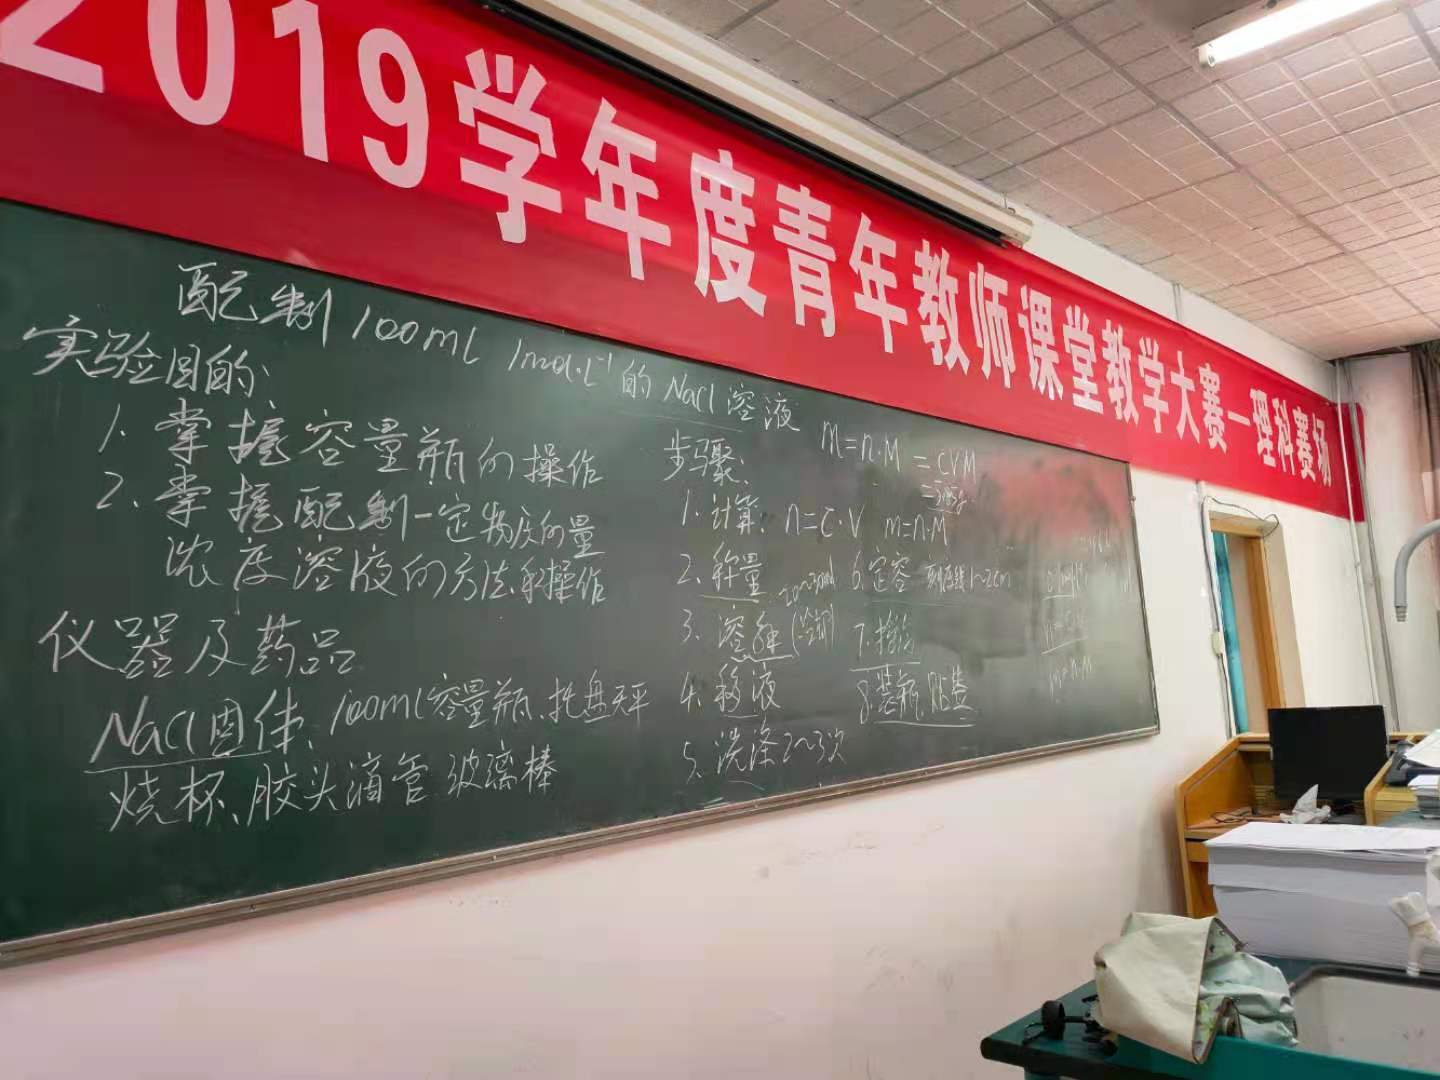 2019学年度青年教师课堂教学大赛—理科赛场
配制100ml 1mol·L⁻¹的NaCl溶液
实验目的:
1. 掌握容量瓶的操作
2. 掌握配制一定物质的量
浓度溶液的方法和操作
仪器及药品
NaCl固体、100ml容量瓶、托盘天平
烧杯、胶头滴管 玻璃棒
步骤:
m=n·M =CVM
1. 计算: n=C·V m=n·M
2. 称量
3. 溶解 (冷却)
4. 移液
5. 洗涤2~3次
6. 定容 1~2cm
7. 摇匀
8. 装瓶 贴签
m=n·M